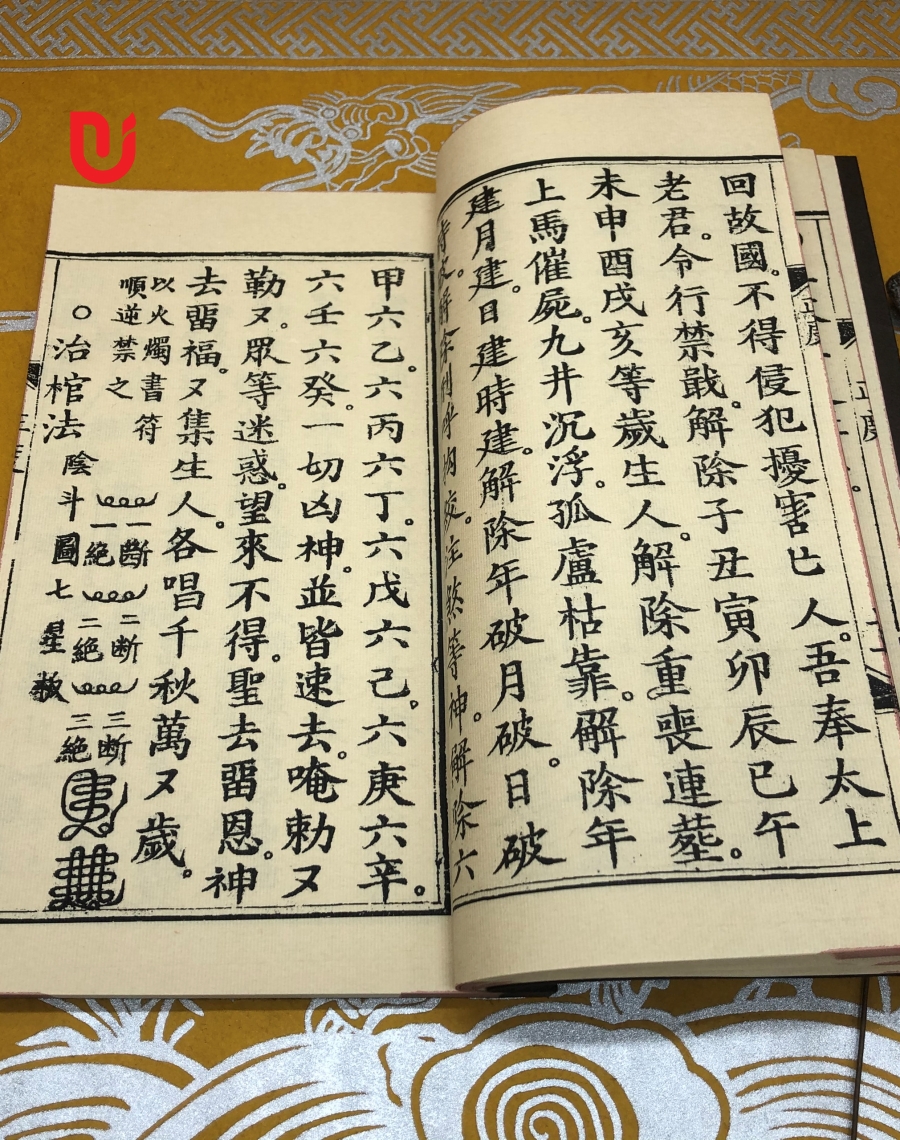 回故國。不得侵犯擾害亡人。吾奉太上
老君。令行禁戢。解除子丑寅卯辰巳午
未申酉戌亥等歲生人。解除重喪連塟。
上馬催屍。九井沉浮。孤盧枯靠。解除年
建月建。日建時建。解除年破月破。日破
等神。解除六
甲六乙。六丙六丁。六戊六己。六庚六辛。
六壬六癸。一切凶神。並皆速去。唵勅又
勒又。眾等迷惑。望來不得。聖去畱恩。神
去畱福。又集生人。各唱千秋萬又歲。
以火燭書符
順逆禁之
○治棺法
一斷
一絕
二斷
二絕
三斷
三絕
陰斗圖七星